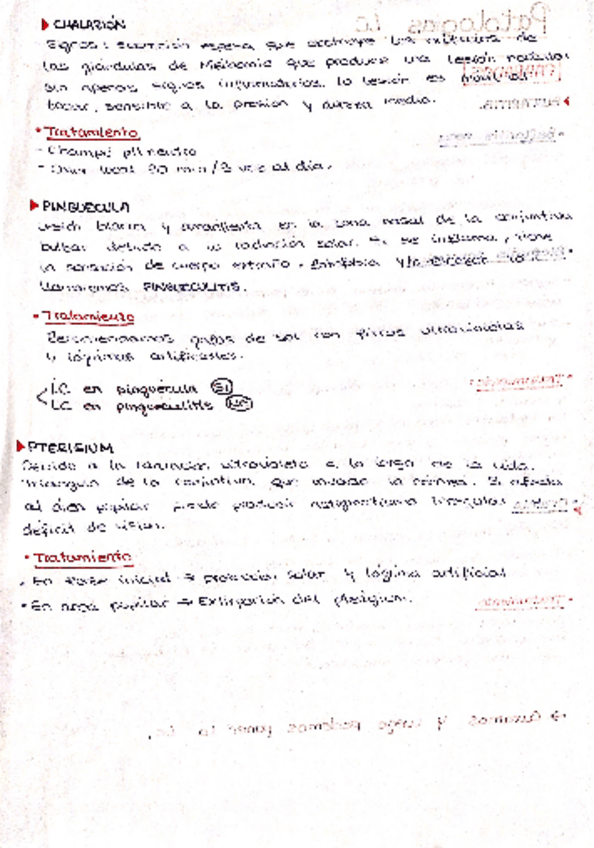 ▶ CHALAZIÓN
Signos: secreción espesa que obstruye los
las glándulas de Meibomio que produce una lesión nodular
sin apenas signos inflamatorios. la lesión es
sensible a la presión y dureza media.
• Tratamiento
- Champú pH neutro
- Calor local 20 min / 2 vec al día.
▶ PINGUECULA
lesión blanca y amarillenta en la zona nasal de la conjuntiva
bulbar debido a la radiación solar. Si se inflama, tiene
la sensación de cuerpo extraño, fotofobia y
llamaremos PINGUECULITIS.
• Tratamiento
Recomendamos gafas de sol con filtros ultravioletas
y lágrimas artificiales.
LC en pinguécula SI
LC en pingueculitis NO
▶ PTERIGIUM
Debido a la radiación ultravioleta a lo largo de la vida.
Triángulo de la conjuntiva que invade la córnea. Si afecta
al área pupilar puede producir astigmatismo irregular
déficit de visión.
• Tratamiento
• En fase inicial → protección solar y lágrima artificial
• En area pupilar → Extirpación del pterigium.